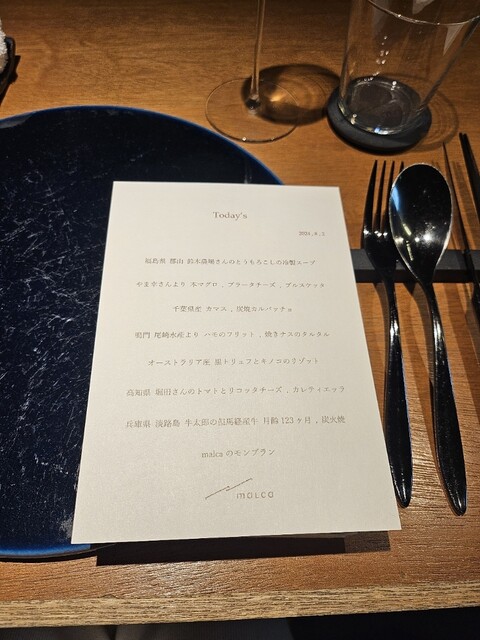 Today's
2024 . 8 . 2
福島県 郡山 鈴木農場さんのとうもろこしの冷製スープ
やま幸さんより 本マグロ , ブラータチーズ , ブルスケッタ
千葉県産 カマス , 炭焼カルパッチョ
鳴門 尾崎水産より ハモのフリット , 焼きナスのタルタル
オーストラリア産 黒トリュフとキノコのリゾット
高知県 堀田さんのトマトとリコッタチーズ , カレティエッラ
兵庫県 淡路島 牛太郎の但馬経産牛 月齢 123 ヶ月 , 炭火焼
malca のモンブラン
malca